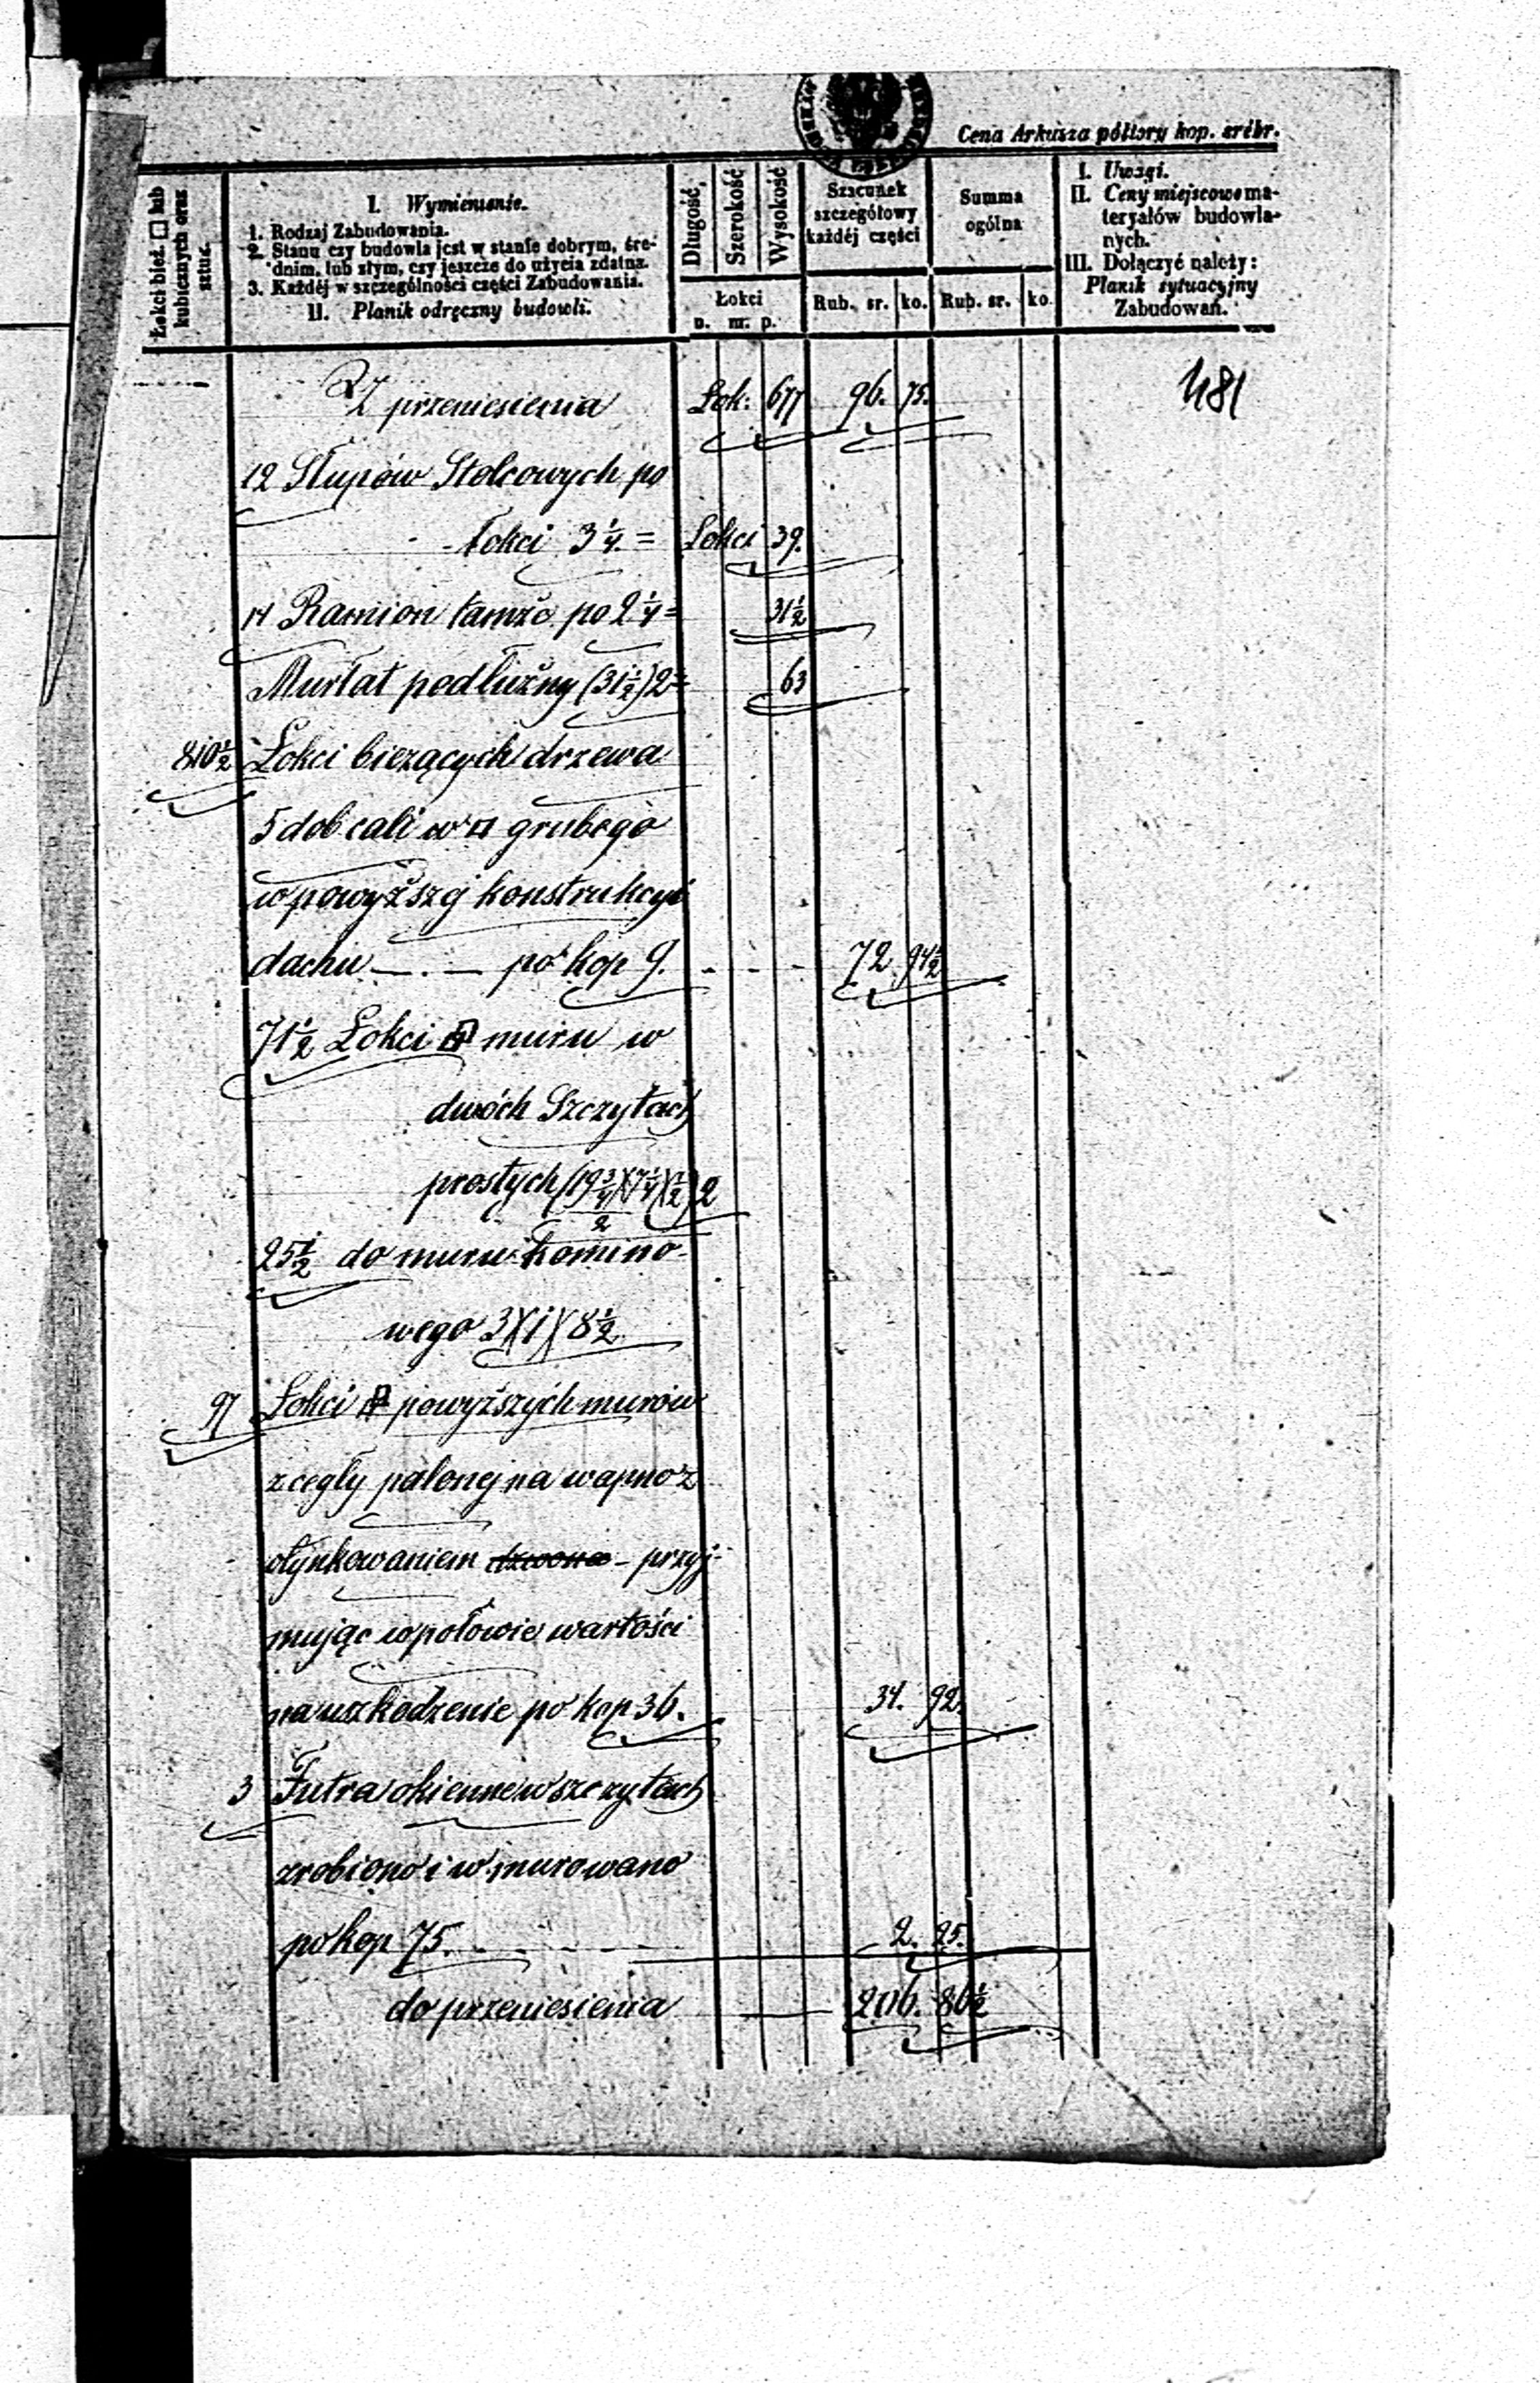 Cena Arkusza półtory kop. srebr.
Łokci bież. □ lub kubicznych oraz sztuk.
I. Wymienienie.
1. Rodzaj Zabudowania.
2. Stanu czy budowla jest w stanie dobrym, śre-
dnim, lub złym, czy jeszcze do użycia zdatna.
3. Każdéj w szczególności części Zabudowania.
II. Planik odręczny budowli.
Długość,
Szerokość
Wysokość
Łokci
n. m. p.
Szacunek
szczegółowy
każdéj części
Rub. sr. ko.
Summa
ogólna
Rub. sr. ko
I. Uwagi.
II. Ceny miejscowe ma-
teryałów budowla-
nych.
III. Dołączyć należy:
Planik sytuacyjny
Zabudowań.
481
Z przeniesienia Łok: 677 96. 75.
12 Słupów Stolcowych po
łokci 3 1/4. = Łokci 39.
14 Ramion tamże po 2 1/4 = 31 1/2
Murłat podłużny (31 1/2) 2 = 63
810 1/2 Łokci bieżących drzewa
5 do 6 cali w □ grubego
w powyższej konstrukcyi
dachu — . — po kop 9. - - - 72 94 1/2
71 1/2 Łokci muru w
dwóch Szczytach
prostych (19 3/4)(7 1/4)(1/2) 2
2
25 1/2 do muru komino-
wego 3)(1)(8 1/2
97 Łokci powyższych murów
z cegły palonej na wapno z
otynkowaniem - przyj-
mując w połowie wartości
na uszkodzenie po kop 36. 34. 92.
3 Futra okienne w szczytach
zrobiono i w murowano
po kop 75. - - - - - 2. 25.
do przeniesienia — 206. 86 1/2